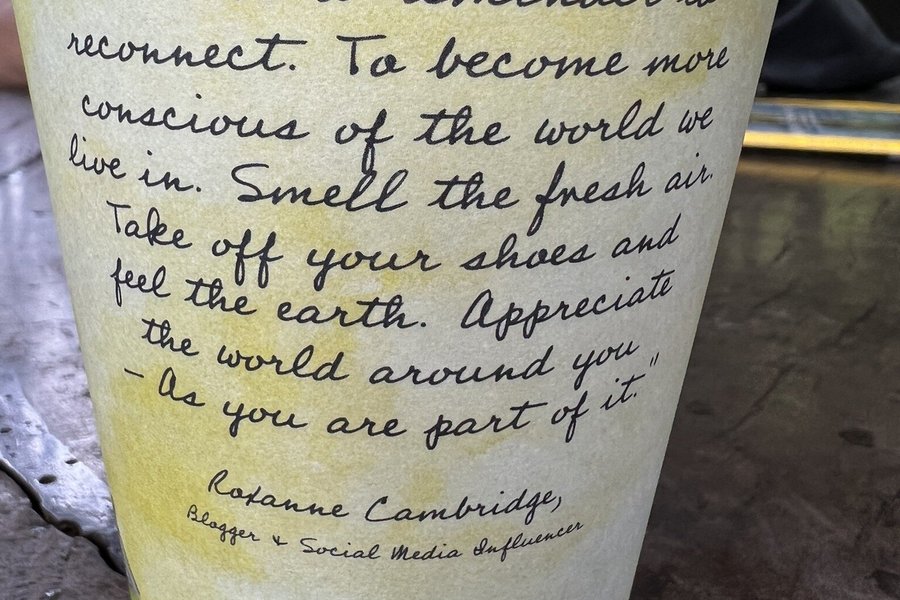 reminder to
reconnect. To become more
conscious of the world we
live in. Smell the fresh air.
Take off your shoes and
feel the earth. Appreciate
the world around you
- As you are part of it."
Roxanne Cambridge,
Blogger & Social Media Influencer